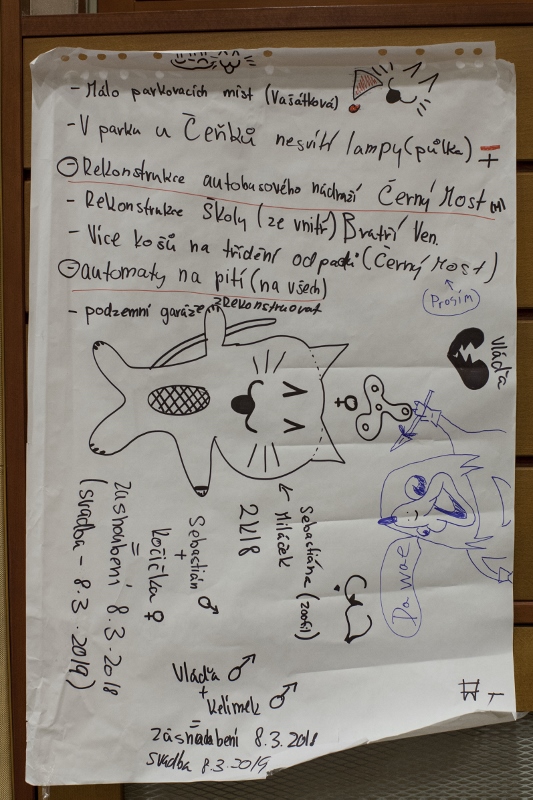 - Málo parkovacích míst (Vašátková)
- V parku u Čeňků nesvítí lampy (půlka) +
- Rekonstrukce autobusového nádraží Černý Most (M)
- Rekonstrukce Školy (ze vnitř) Bratří Ven.
- Více košů na třídění odpadů (Černý Most)
Prosím
- automaty na pití (na všech)
- podzemní garáže zrekonstruovat
Vláďa
← Sebastiána (zoofil)
Miláček
2k18
Sebastián ♂
+
Kočička ♀
=
Zásnoubení 8.3.2018
(svadba - 8.3.2019)
Da wae
Vláďa ♂
+
Kelímek ♂
=
zásnoubení 8.3.2018
svadba 8.3.2019